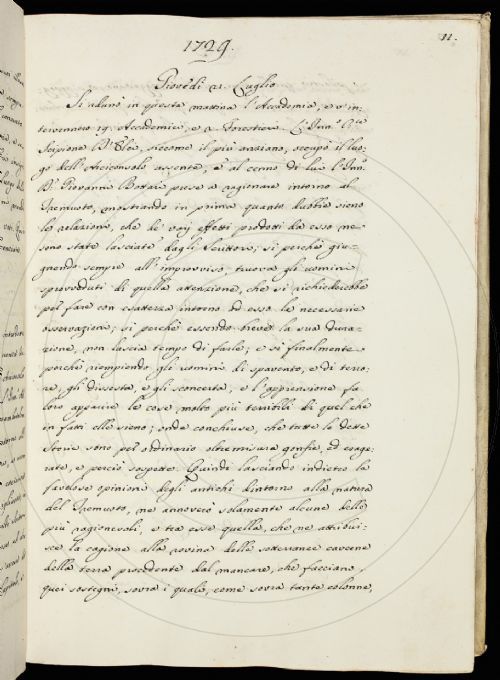 11.
1729.
Giovedì 21. Luglio
Si adunò in questa mattina l'Accademia, e v'in-
tervennero 19. Accademici, e 2. Forestieri. L'Inn.º
Scipione siccome il più anziano, occupò il luo-
go dell'Arciconsolo assente, e al cenno di lui l'Inn.º
Giovanni Bottari prese a ragionare intorno al
Tremuoto, mostrando in prima quanto dubbie sieno
le relazioni, che de' varj effetti prodotti da esso ne
sono state lasciate dagli Scrittori; sì perchè giu-
gnendo sempre all'improvviso, truova gli uomini
sprovveduti di quella attenzione, che si richiederebbe
per fare con esattezza intorno ad esso le necessarie
osservazioni; sì perchè essendo breve la sua dura-
zione, non lascia tempo di farle; e sì finalmente
perchè riempiendo gli uomini di spavento, e di terro-
re, gli dissesta, e gli sconcerta, e l'apprensione fa
loro apparire le cose molto più terribili di quel che
in fatti elle sieno; onde conchiuse, che tutte le dette
Storie sono per ordinario oltremisura gonfie, ed esage-
rate, e perciò sospette. Quindi lasciando indietro le
favolose opinioni degli antichi dintorno alla natura
del Tremuoto, ne annoverò solamente alcune delle
più ragionevoli, e tra esse quella, che ne attribui-
sce la cagione alla rovina delle sotterranee caverne
della terra procedente dal mancare, che facciano,
quei sostegni, sovra i quali, come sovra tante colonne,